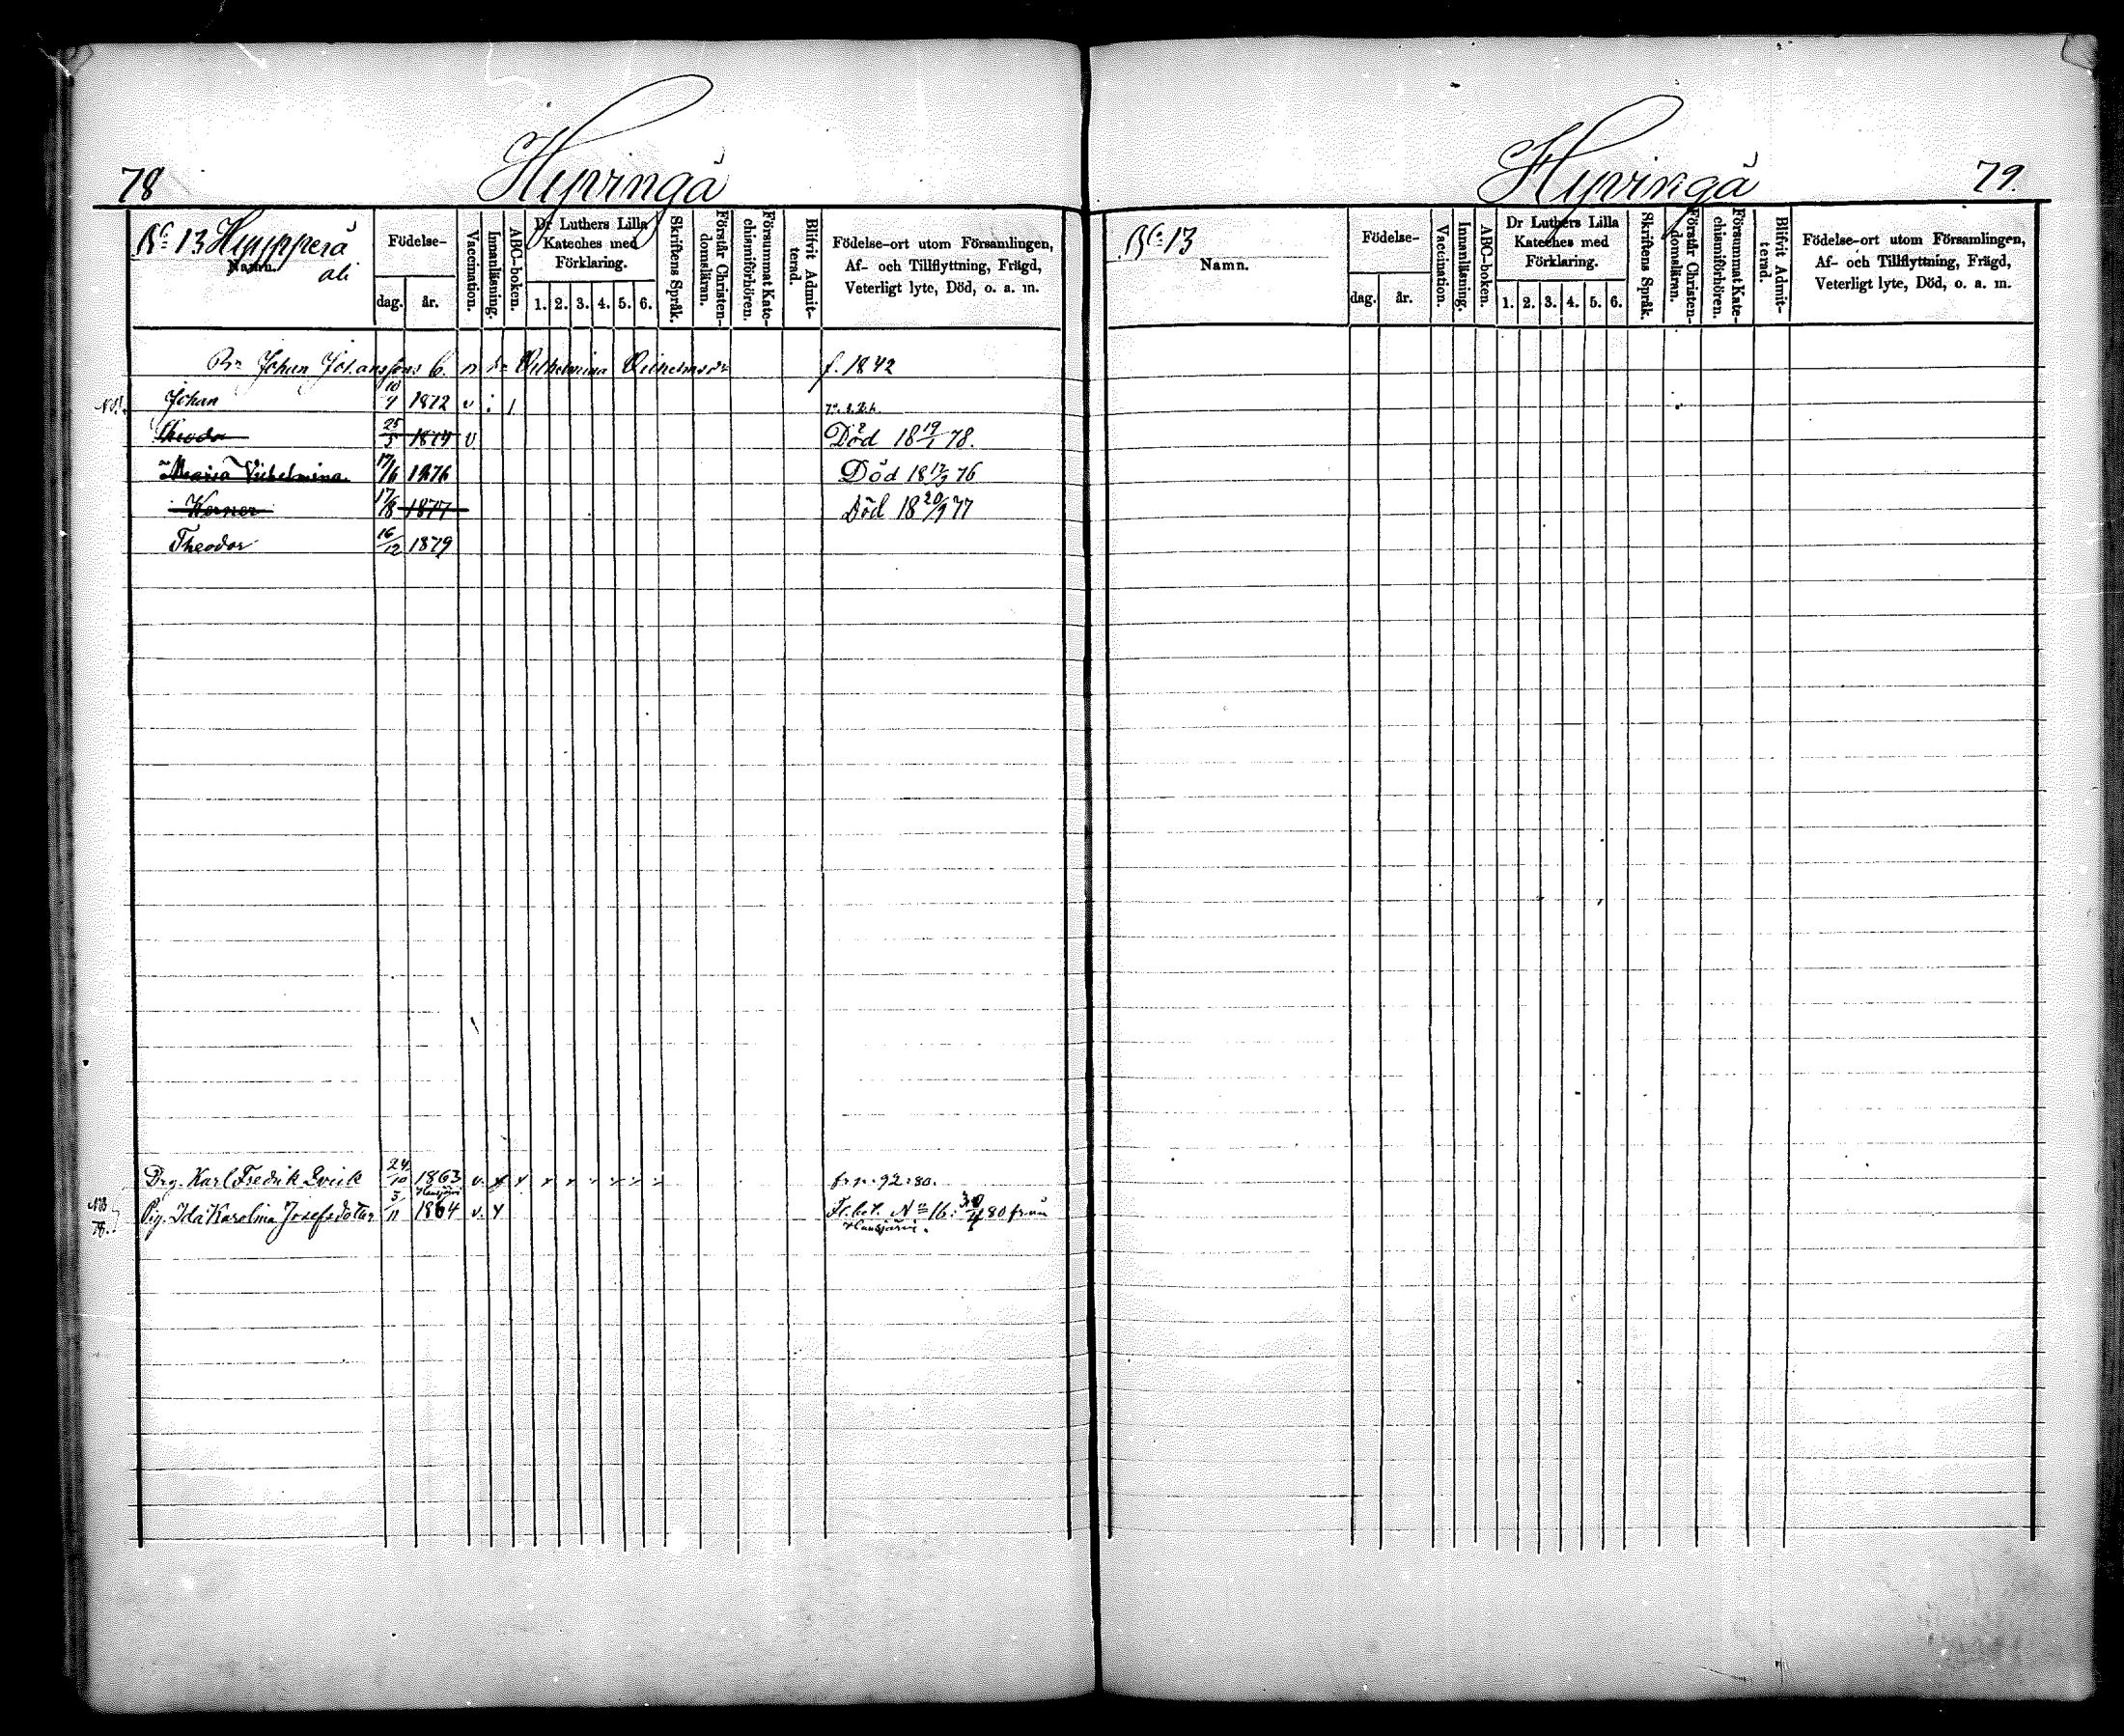 78
Hyvingå
No 13 Hyypperä
ali
Namn.
Födelse-
dag. år.
Vaccination.
Innanläsning.
ABC-boken.
Dr Luthers Lilla
Kateches med
Förklaring.
1. 2. 3. 4. 5. 6.
Skriftens Språk.
Förstår Christen-
domsläran.
Försummat Kate-
chismiförhören.
Blifvit Admit-
terad.
Födelse-ort utom Församlingen,
Af- och Tillflyttning, Frägd,
Veterligt lyte, Död, o. a. m.
Johan Johanssons Vilhelmina Vilhelmsdr f. 1842
Johan 10/7 1872 v
Theodor 25/5 1874 v Död 18 19/1 78.
Maria Vilhelmina 17/6 1876 Död 18 17/9 76
Werner 17/8 1877 Död 18 20/9 77
Theodor 16/12 1879
Drg. Karl Fredrik 24/10 1863 v. fr. p. 92: 80.
Hausjärvi
Pig. Ida Karolina Josefsdotter 5/11 1864 v. Fl. bet. No 16: 80 från
Hausjärvi.
Hyvingå
79.
No 13
Namn.
Födelse-
dag. år.
Vaccination.
Innanläsning.
ABC-boken.
Dr Luthers Lilla
Kateches med
Förklaring.
1. 2. 3. 4. 5. 6.
Skriftens Språk.
Förstår Christen-
domsläran.
Försummat Kate-
chismiförhören.
Blifvit Admit-
terad.
Födelse-ort utom Församlingen,
Af- och Tillflyttning, Frägd,
Veterligt lyte, Död, o. a. m.